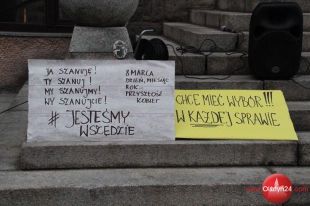 JA SZANUJĘ!
TY SZANUJ!
MY SZANUJMY!
WY SZANUJCIE!
8 MARCA
DZIEŃ, MIESIĄC
ROK...
PRZYSZŁOŚĆ
KOBIET
# JESTEŚMY
WSZĘDZIE
CHCĘ MIEĆ WYBÓR!!!
W KAŻDEJ SPRAWIE
Olsztyn24.com